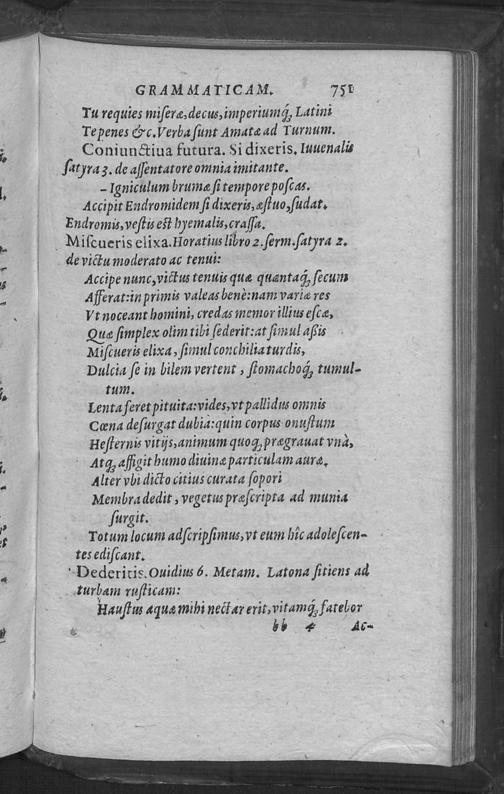 GRAMMATICAM. 751
Tu requies miseræ, decus, imperiumq́ꝫ Latini
Te penes &c. Verba sunt Amatæ ad Turnum.
Coniunctiua futura. Si dixeris. Iuuenalis
satyra 3. de assentatore omnia imitante.
– Igniculum brumæ si tempore poscas.
Accipit Endromidem si dixeris, æstuo, sudat.
Endromis, vestis est hyemalis, crassa.
Miscueris elixa. Horatius libro 2. serm. satyra 2.
de victu moderato ac tenui:
Accipe nunc, victus tenuis quæ quantaq́ꝫ secum
Afferat: in primis valeas benè: nam variæ res
Vt noceant homini, credas memor illius escæ,
Quæ simplex olim tibi sederit: at simul aßis
Miscueris elixa, simul conchilia turdis,
Dulcia se in bilem vertent, stomachoq́ꝫ tumul-
tum.
Lenta feret pituita: vides, vt pallidus omnis
Cœna desurgat dubia: quin corpus onustum
Hesternis vitijs, animum quoqꝫ prægrauat vnà,
Atqꝫ affigit humo diuinæ particulam auræ.
Alter vbi dicto citius curata sopori
Membra dedit, vegetus præscripta ad munia
surgit.
Totum locum adscripsimus, vt eum hîc adolescen-
tes ediscant.
Dederitis. Ouidius 6. Metam. Latona sitiens ad
turbam rusticam:
Haustus aquæ mihi nectar erit, vitamq́ꝫ fatebor
bb 4 Ac-